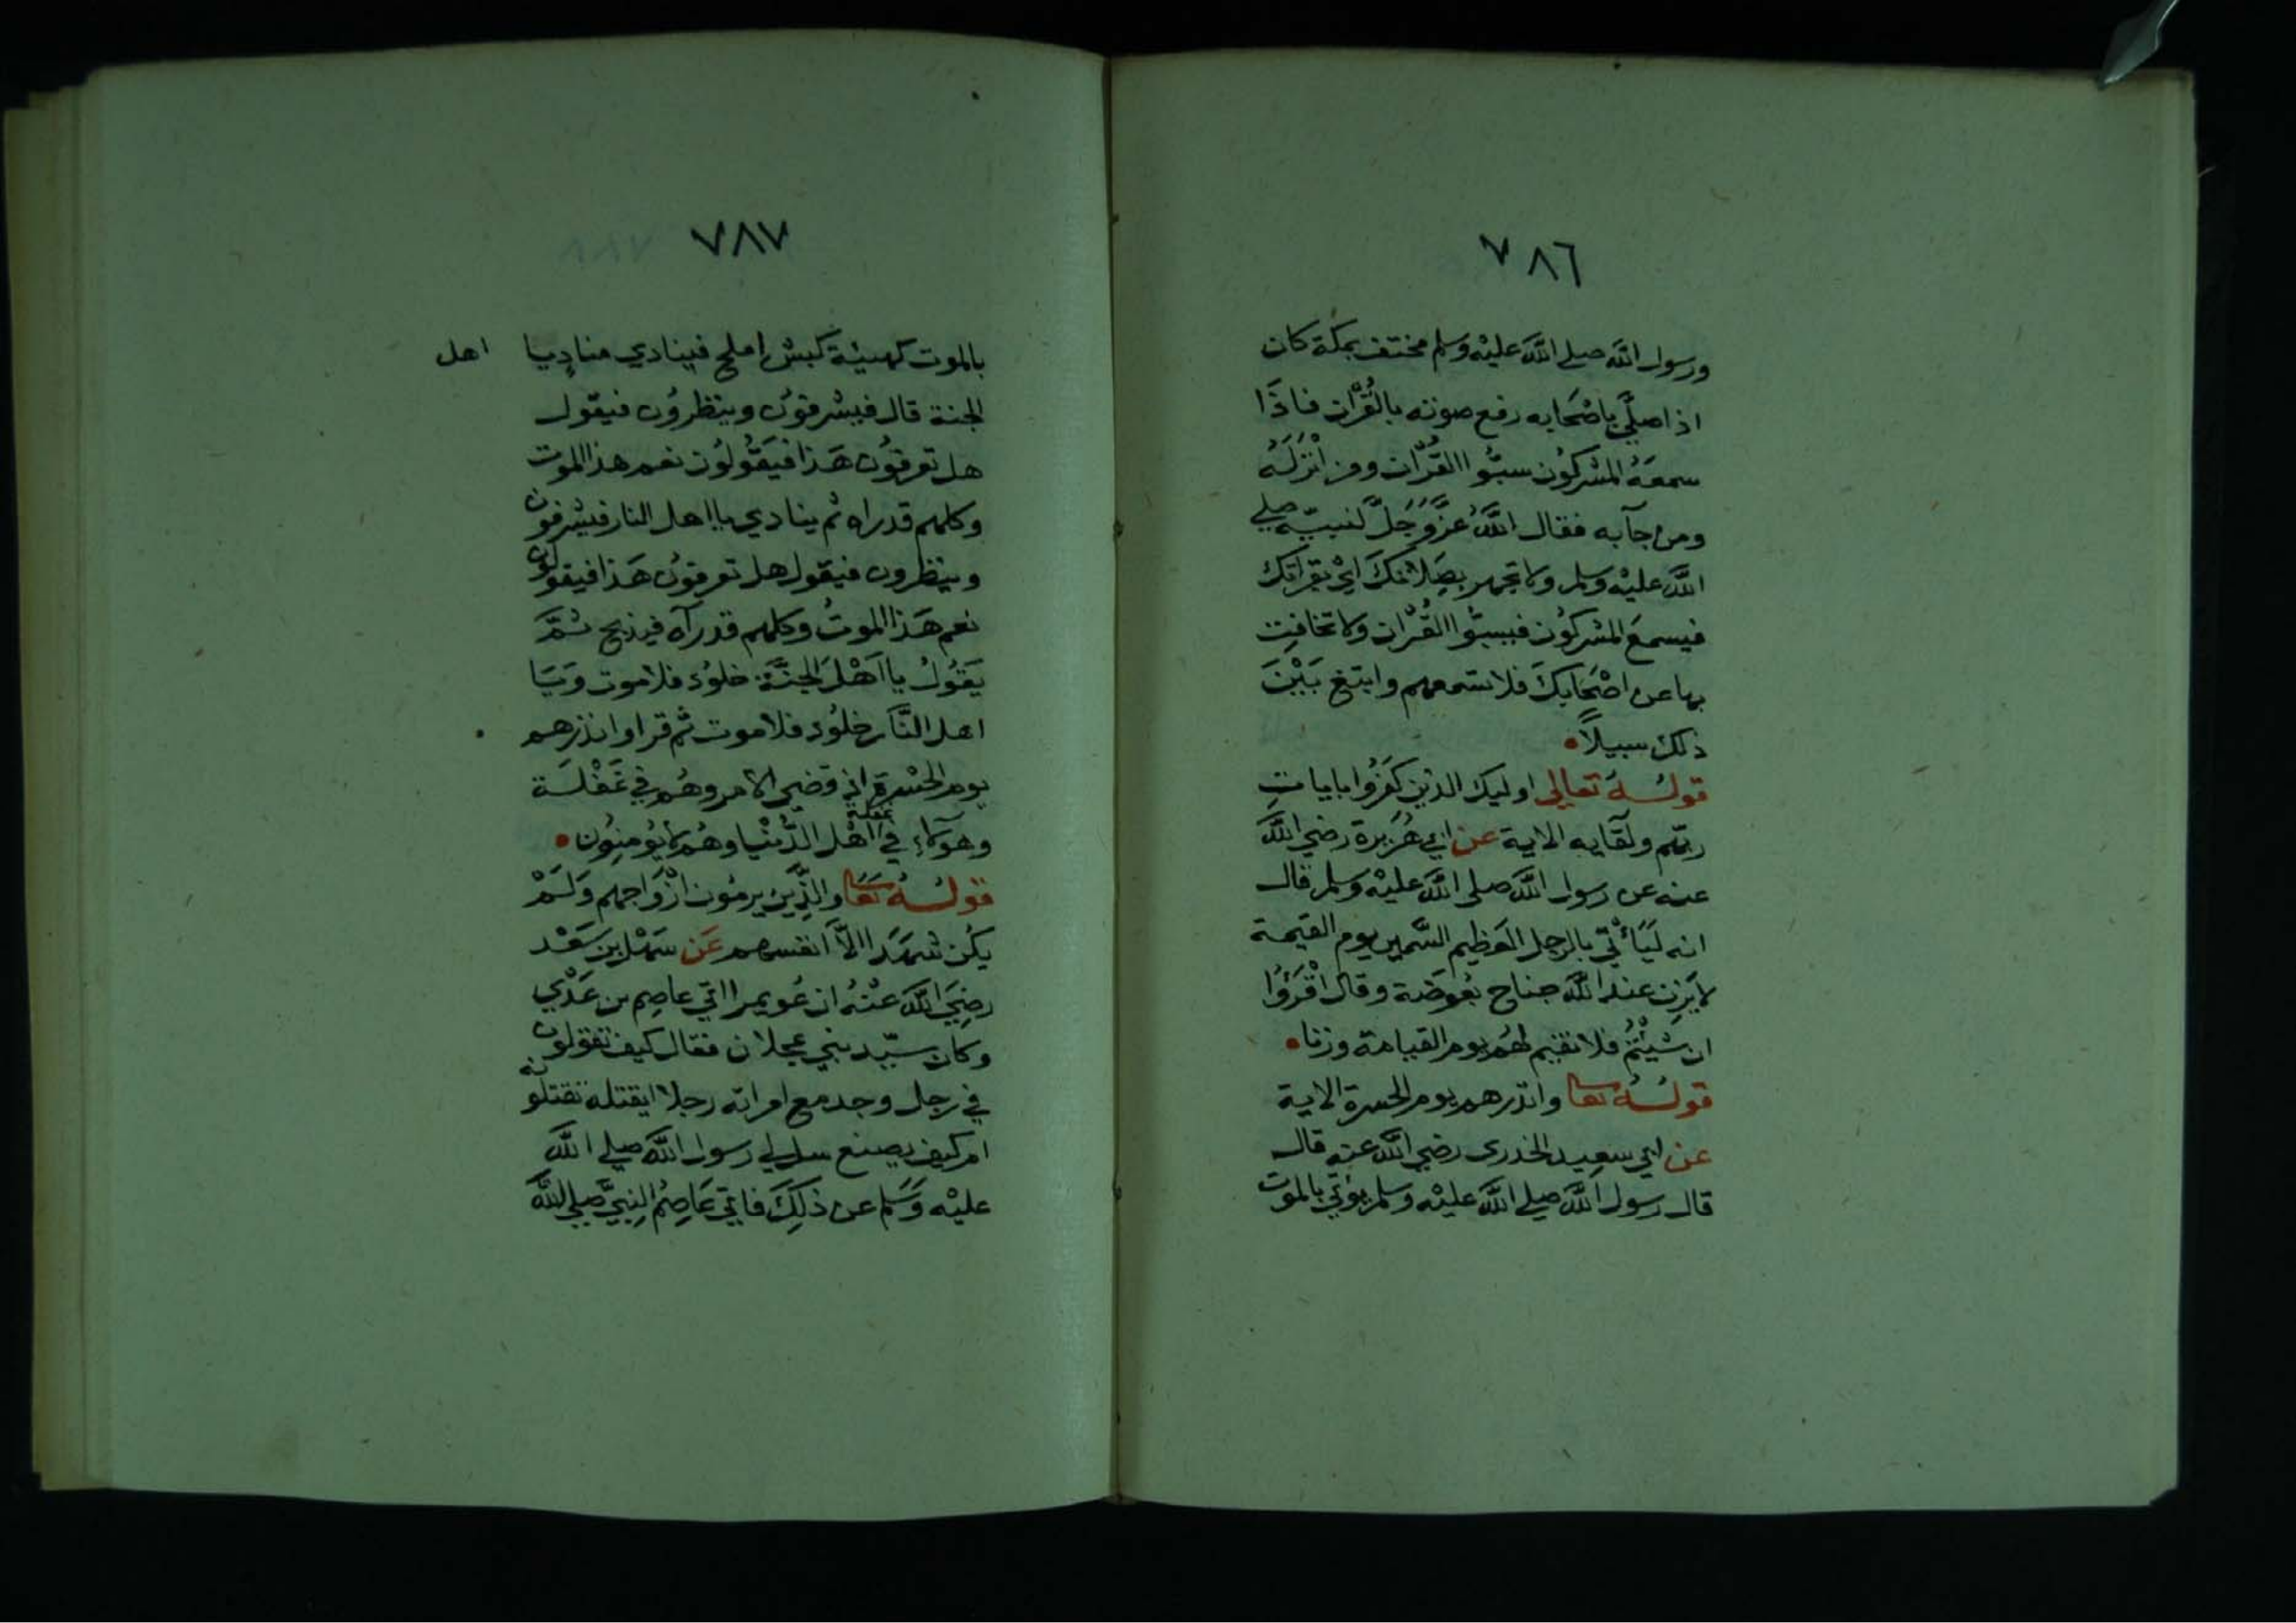 ٧٨٦
ورسول الله صلى الله عليه وسلم مختف بمكة كان
اذ اصلي باصحابه رفع صوته بالقرآن فاذا
سمعه المشركون سبوا القرآن ومن انزله
ومن جآبه فقال الله عز وجل لنبيه صلي
الله عليه وسلم ولا تجهر بصلاتك اي بقراتك
فيسمع المشركون فيسبوا القرآن ولا تخافت
بها عن اصحابك فلا تسمعهم وابتغ بين
ذلك سبيلا
قوله تعالى اوليك الذين كفروا بايات
ربهم ولقايه الاية عن ابي هريرة رضي الله
عنه عن رسول الله صلى الله عليه وسلم قال
انه ليأتي بالرجل العظيم السمين يوم القيمة
لا يزن عند الله جناح بعوضة وقال اقرؤا
ان شيتم فلا نقيم لهم يوم القيامة وزنا
قوله تعا وانذرهم يوم الحسرة الاية
عن ابي سعيد الخدري رضي الله عنه قال
قال رسول الله صلي الله عليه وسلم يؤتي بالموت
٧٨٧
بالموت كهيئة كبش املح فينادي مناديا اهل
الجنة قال فيشرفون وينظرون فيقول
هل تعرفون هذا فيقولون نعم هذا الموت
وكلهم قد راه ثم ينادي يا اهل النار فيشرفون
وينظرون فيقول هل تعرفون هذا فيقولون
نعم هذا الموت وكلهم قد رآه فيذبح ثم
يقول يا اهل الجنة خلود فلا موت ويا
اهل النار خلود فلا موت ثم قرا وانذرهم
يوم الحسرة اذ قضي الامر وهم في غفلة
وهولاء في غفلة اهل الدنيا وهم لا يؤمنون
قوله تعا والذين يرمون ازواجهم ولم
يكن شهدا الا انفسهم عن سهل بن سعد
رضي الله عنه ان عويمرا اتي عاصم بن عدي
وكان سيد بني عجلان فقال كيف تقولون
في رجل وجد مع امراته رجلا ايقتله تقتلونه
ام كيف يصنع سل لي رسول الله صلي الله
عليه وسلم عن ذلك فاتي عاصم النبي صلي الله